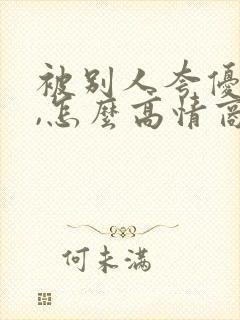 被别人夸優
,怎麼高情商
何未满